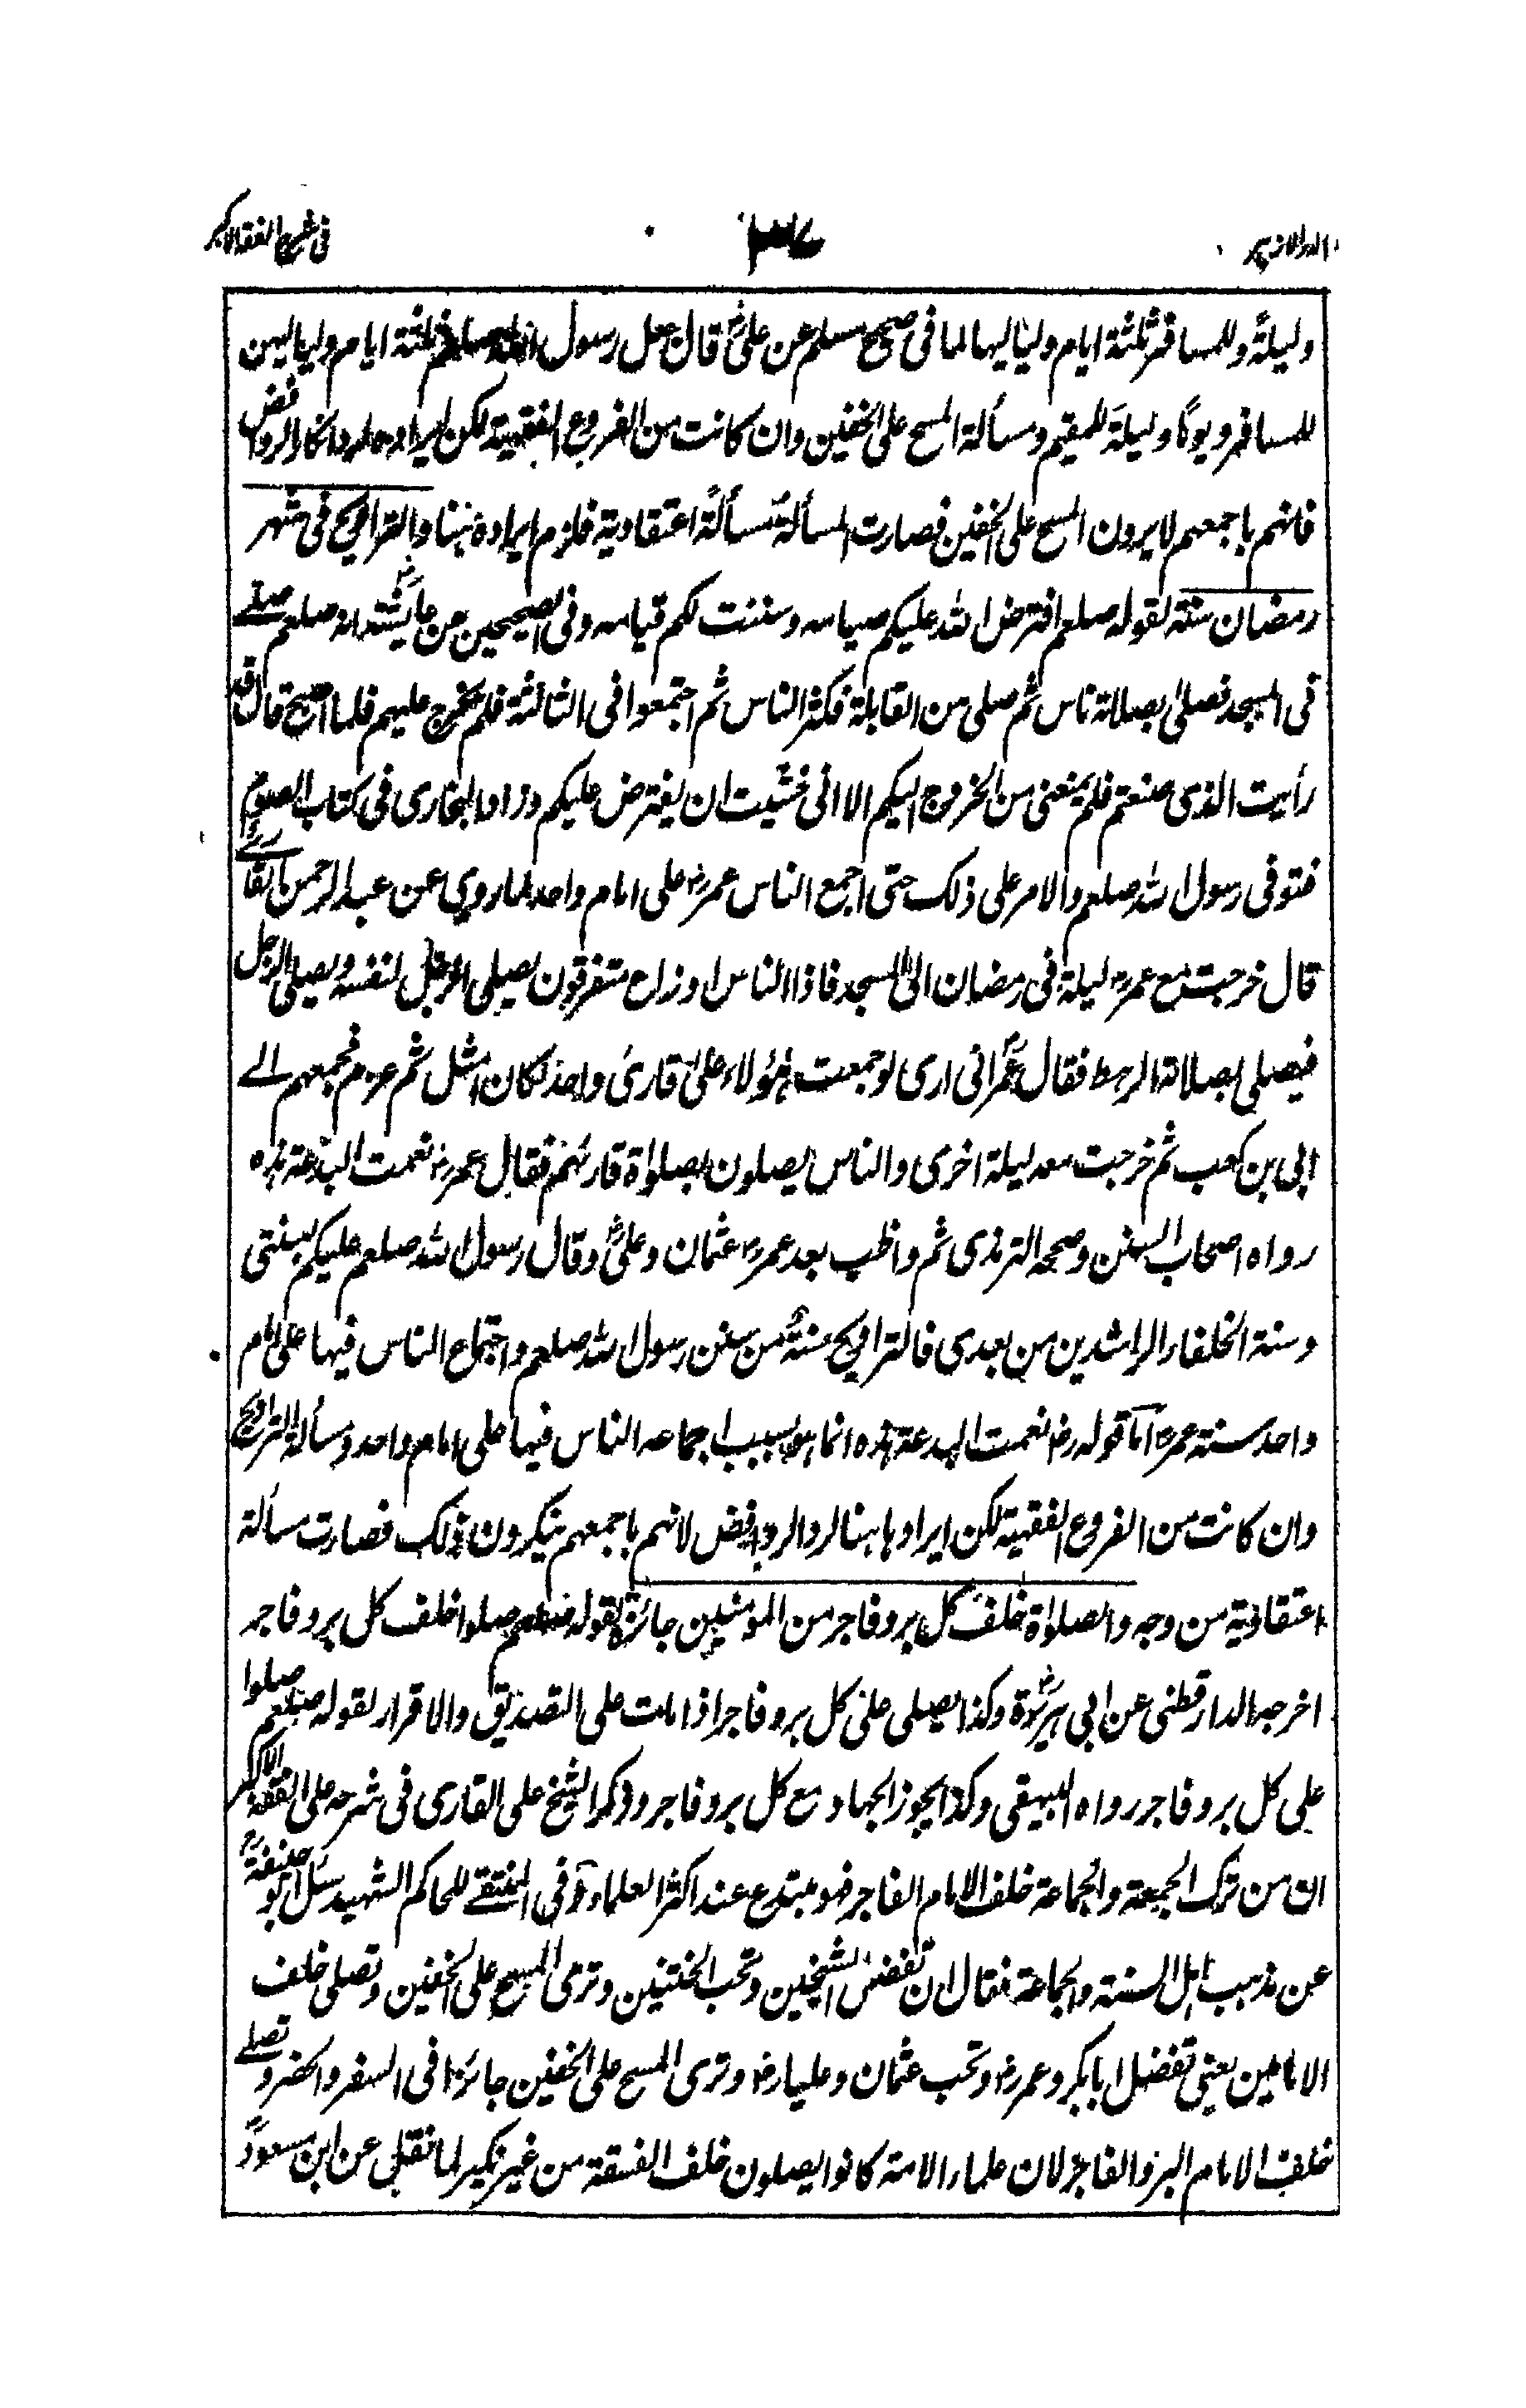 الدر الازهر
في شرح الفقه الاكبر
وليلةً وللمسافر ثلثة ايام ولياليها لما فى صحيح مسلم عن علىؓ قال جعل رسول الله صلعم ثلثة ايام ولياليهن
للمسافر ويومًا وليلةً للمقيم ومسألة المسح على الخفين وان كانت من الفروع الفقهية لكن ايراده لرد انكار الروافض
فانهم باجمعهم لا يرون المسح على الخفين فصارت المسألة مسألةً اعتقادية فلزم ايراده هنا والتراويح فى شهر
رمضان سنة لقوله صلعم افترض الله عليكم صيامه وسننت لكم قيامه وفى الصحيحين عن عايشةؓ انه صلعم صلے
فى المسجد فصلىٰ بصلاته ناس ثم صلى من القابلة فكثر الناس ثم اجتمعوا فى الثالثة فلم يخرج عليهم فلما اصبح قال قد
رأيت الذى صنعتم فلم يمنعنى من الخروج اليكم الا انى خشيت ان يفترض عليكم وزاد البخارى فى كتاب الصوم
فتوفى رسول الله صلعم والامر على ذلك حتى اجمع الناس عمرؓ على امام واحد لما روي عن عبد الرحمن القارے
قال خرجت مع عمرؓ ليلة فى رمضان الى المسجد فاذا الناس اوزاع متفرقون يصلى الرجل لنفسه ويصلى الرجل
فيصلى بصلاته الرهط فقال عمرؓ انى ارى لو جمعت هٰؤلاء علىٰ قارئ واحد لكان امثل ثم عزم فجمعهم الے
ابى بن كعب ثم خرجت معه ليلة اخرى والناس يصلون بصلوٰة قارئهم فقال عمرؓ نعمت البدعة هذه
رواه اصحاب السنن وصححه الترمذى ثم واظب بعد عمرؓ عثمان وعلىؓ وقال رسول الله صلعم عليكم بسنتى
وسنة الخلفاء الراشدين من بعدى فالتراويح سنةٌ من سنن رسول الله صلعم واجتماع الناس فيها على امام
واحد سنة عمرؓ اما قوله رؓ نعمت البدعة هذه انما هو بسبب اجماعه الناس فيها على امام واحد ومسألة التراويح
وان كانت من الفروع الفقهية لكن ايرادها هنا لرد الروافض لانهم باجمعهم ينكرون ذٰلك فصارت مسألة
اعتقادية من وجه والصلوٰة خلف كل بر وفاجر من المؤمنين جائزة لقوله صلعم صلوا خلف كل بر وفاجر
اخرجه الدارقطنى عن ابى هريرةؓ وكذا يصلى على كل بر وفاجر اذا مات على التصديق والاقرار لقوله صلعم صلوا
على كل بر وفاجر رواه البيهقى وكذا يجوز الجهاد مع كل بر وفاجر وذكر الشيخ على القارى فى شرحه على الفقه الاكبر
ان من ترك الجمعة والجماعة خلف الامام الفاجر فهو مبتدع عند اكثر العلماء وفى المنتقے للحاكم الشهيد سئل ابو حنيفةؒ
عن مذهب اهل السنة والجماعة فقال ان تفضل الشيخين وتحب الختنين وترى المسح على الخفين وتصلى خلف
الامامين يعنى تفضل ابا بكر وعمرؓ وتحب عثمان وعليا رؓ وترى المسح على الخفين جائزا فى السفر والحضر وتصلے
خلف الامام البر والفاجر لان علماء الامة كانوا يصلون خلف الفسقة من غير نكير لما نقل عن ابن مسعودؓ